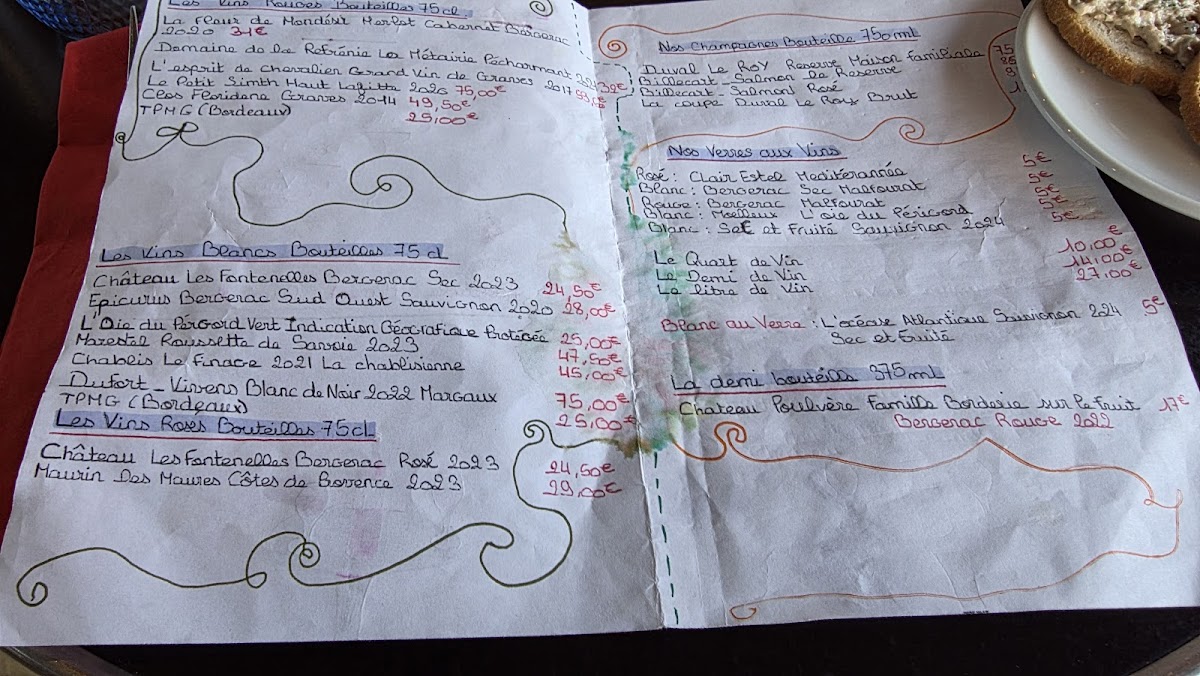 Les Vins Rouges Bouteilles 75 cl
La Fleur de Mondésir Merlot Cabernet Bergerac
2020 31€
Domaine de la Métairie Pécharmant 32€
L'esprit de Chevalier Grand Vin de Graves 2017
Le Petit Smith Haut Lafitte 2020 75,00€
Clos Floridene Graves 2014 49,50€
TPMG (Bordeaux) 25,00€
Les Vins Blancs Bouteilles 75 cl
Château Les Fontenelles Bergerac Sec 2023 24,50€
Epicurus Bergerac Sud Ouest Sauvignon 2020 28,00€
L'Oie du Périgord Vert Indication Géografique Protégée 25,00€
Marestel Roussette de Savoie 2023 47,50€
Chablis Le Finage 2021 La chablisienne 45,00€
Dufort_Vivens Blanc de Noir 2022 Margaux 75,00€
TPMG (Bordeaux) 25,00€
Les Vins Roses Bouteilles 75 cl
Château Les Fontenelles Bergerac Rosé 2023 24,50€
Maurin Des Maures Côtes de Provence 2023 29,00€
Nos Champagnes Bouteille 750 ml
Duval Le Roy Reserve Maison Familiale 75
Billecart_Salmon le Reserve
Billecart_Salmon Rosé
La coupe Duval Le Roy Brut
Nos Verres aux Vins
Rosé : Clair Estel Mediterannée 5€
Blanc : Bergerac Sec Malfourat 5€
Rouge : Bergerac Malfourat 5€
Blanc : Moelleux L'oie du Périgord 5€
Blanc : Sec et Fruité Sauvignon 2024 5€
Le Quart de Vin 10,00 €
Le Demi de Vin 14,00€
Le litre de Vin 27,00€
Blanc au Verre : L'océane Atlantique Sauvignon 224 5€
Sec et fruité
La demi bouteille 375 ml
Chateau Poulvère Famille Borderie sur le fruit 17€
Bergerac Rouge 2022